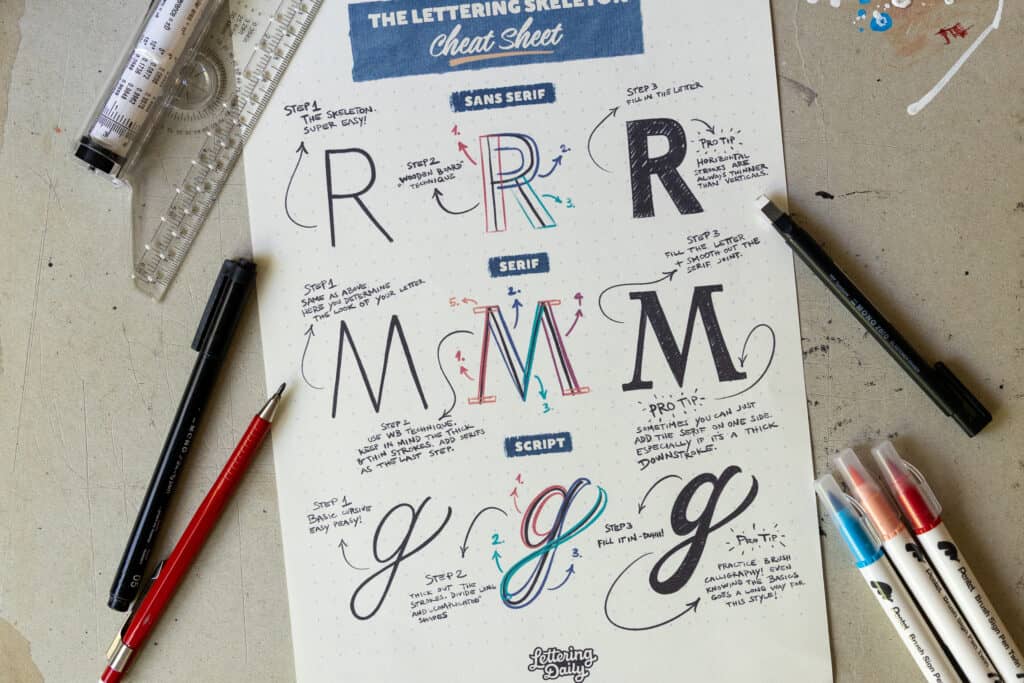 THE LETTERING SKELETON
Cheat Sheet
SANS SERIF
STEP 1
THE SKELETON.
SUPER EASY!
R
STEP 2
"WOODEN BOARD"
TECHNIQUE
1.
2.
3.
R
STEP 3
FILL IN THE LETTER
R
PRO TIP
HORIZONTAL
STROKES ARE
ALWAYS THINNER
THAN VERTICALS.
SERIF
STEP 1
SAME AS ABOVE
HERE YOU DETERMINE
THE LOOK OF YOUR LETTER
M
5.
2.
4.
1.
3.
M
STEP 2
USE WB TECHNIQUE.
KEEP IN MIND THE THICK
& THIN STROKES. ADD SERIFS
AS THE LAST STEP.
STEP 3
FILL THE LETTER
+ SMOOTH OUT THE
SERIF JOINT.
M
PRO TIP
SOMETIMES YOU CAN JUST
ADD THE SERIF ON ONE SIDE.
ESPECIALLY IF IT'S A THICK
DOWNSTROKE.
SCRIPT
STEP 1
BASIC CURSIVE
EASY PEASY!
g
1.
2.
3.
g
STEP 2
THICK OUT THE
STROKES. DIVIDE LONG
AND "COMPLICATED"
SHAPES
STEP 3
FILL IT IN - DUHH!
g
PRO TIP
PRACTICE BRUSH
CALLIGRAPHY! EVEN
KNOWING THE BASICS
GOES A LONG WAY FOR
THIS STYLE!
Lettering
Daily
05
MONO
Pentel Brush Sign Pen Twin
Pentel Brush Sign Pen Twin
Pentel Brush Sign Pen